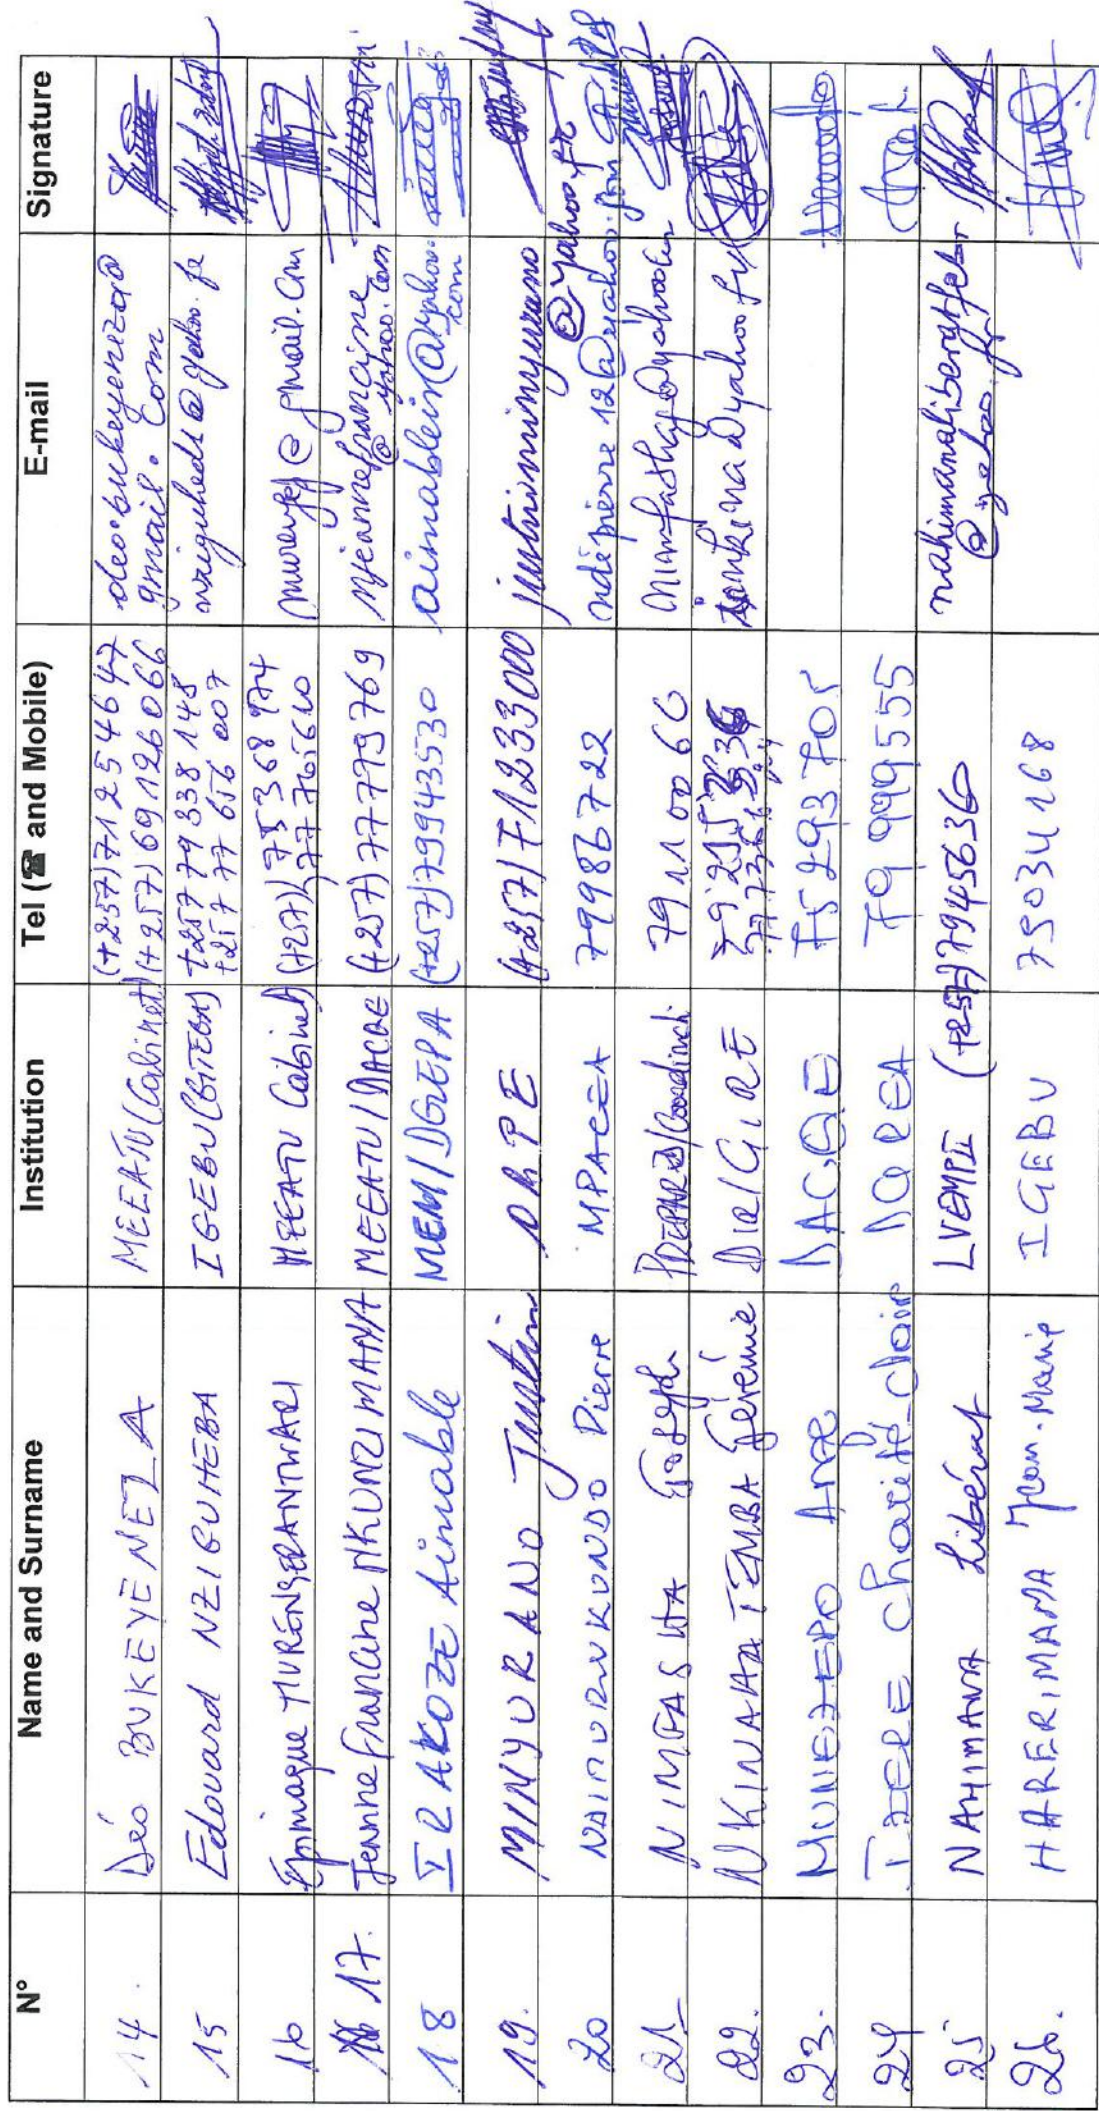 N° Name and Surname Institution Tel (☎ and Mobile) E-mail Signature
14. Déo BUKEYENEZA MEEATU (Cabinet) (+257) 71254647
(+257) 69126066 deo.bukeyeneza@
gmail.com
15 Edouard NZIGUHEBA IGEBU (GITEGA) +257 79 338 148
+257 77 656 007 nziguheds@yahoo.fr
16 Epimaque MURENGERANTWARI MEEATU Cabinet (+257) 75 368 974
77 765 610 @gmail.com
17. Jeanne Francine NKUNZIMANA MEEATU/DACOE (+257) 77779769 njeannefrancine
@yahoo.com
18 IRAKOZE Aimable MEM/DGEPA (+257) 79943530 aimablein@yahoo.
com
19. MINYURANO Justin DAPE (+257) 71233000 justinminyurano
@yahoo.fr
20 NDIMURUKUNDO Pierre MPACEA 79986722 ndepierre12@yahoo.fr
21 NIMFASHA Joseph 79110060
22. NKINAHATEMBA Jérémie Dir/GIRE
23. MUNEZERO Ange DACOE 75293705
24 IZERE Charité-Clair 79999555
25 NAHIMANA Libérat LVEMPII (+257) 7945636 nahimanaliberat
@yahoo.fr
26. HARERIMANA Jean-Marie IGEBU 75034168